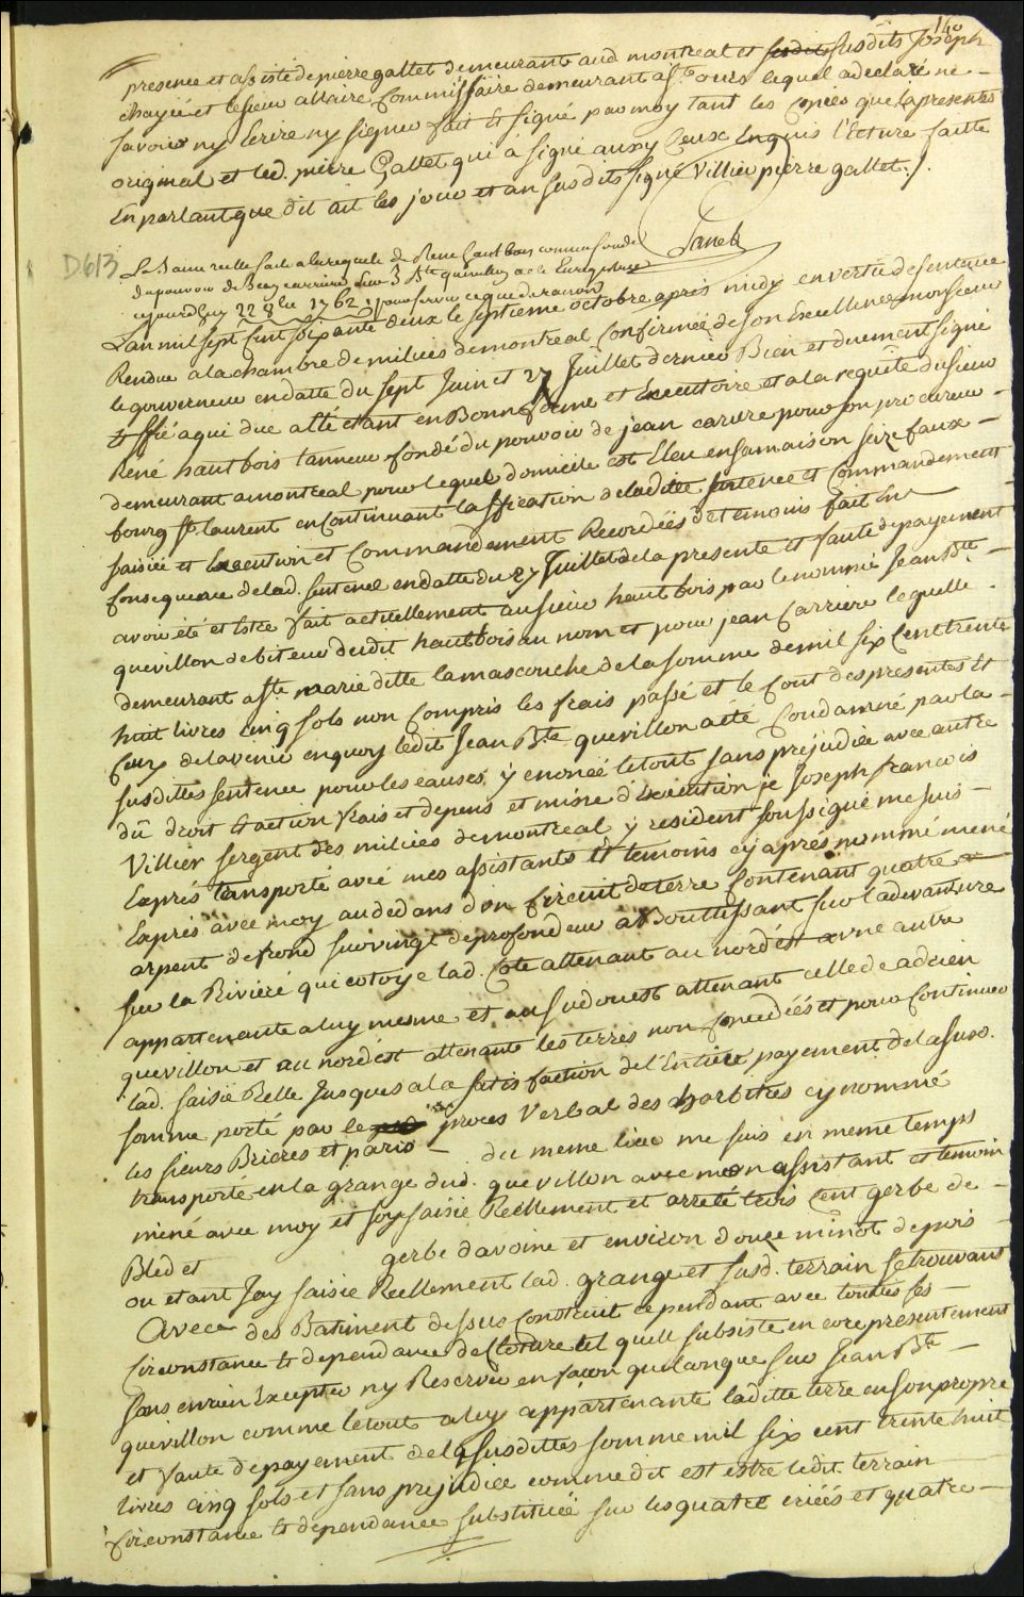 140
presence et assisté de pierre gallet demeurant aud montreal et susdits Joseph
chayié et le sieur allaire Commissaire demeurant a ste ours lequel a declaré ne
savoir ny Ecrire ny signer fait et signé par moy tant les copies que la presente
original et led. pierre Gallet qui a signé aussy Ceux Enquis l'Ecture faitte
En parlant que dit ait les jour et an susdits signé Villier pierre gallet ./.
Panet
D613
La Saisie reelle faite a la requete de Rene hautbois comme fondé
du pouvoir de Jean carriere sur J Bte quevillon a ete Enregistrée
cejourdhuy 22 8bre 1762 pour servir ce que de raison
L'an mil sept Cent soixante deux le septieme octobre apres midy en vertu de sentence
Rendue a la chambre de milices de montreal Confirmée de son Excellence monsieur
le gouverneur en datte du sept Juin et 27 Juillet dernier Bien et duement signé
et ffié a qui due allé etant en Bonne forme et Executtoire et a la requête du sieur
René hautbois tanneur fondé du pouvoir de jean cariere pour son procureur
demeurant a montreal pour lequel domicile est Eleu en sa maison seize faux
bourg st laurent en Continuant la ssfication de ladite sentence et Commandement
saisie et Execution et Commandement Recordées de temoins fait En
Consequence de lad. sentence en datte du 27 Juillet de la presente et faute de payement
avoir été et Estre fait actuellement au sieur hautbois par le nommé Jean Bte
quevillon debiteur dudit hautbois au nom et pour jean Carriere lequelle
demeurant a ste marie ditte la mascouche de la somme de mil six Cent trente
huit livres cinq sols non Compris les frais passé et le Cout des presentes et
Ceux de lavenir en quoy ledit Jean Bte quevillon a été Condamné par la
susdittes sentence pour les causes y enoncé le tout sans prejudice avec autre
dû droit et action frais et depens et mise d'Execution je Joseph francois
Villier sergent des milices de montreal y resident soussigné me suis
Exprés transporté avec mes assistants et temoins cy aprés nommé mené
Exprés avec moy au dedans d'un circuit de terre Contenant quatre
arpent de frond sur vingt de profondeur aboutissant sur la devanture
sur la Riviere qui cotoye lad. Cote attenant au nord est a une autre
appartenante a luy mesme et au sud ouest attenant celle de adrien
quevillon et au nord est attenante les terres non concedées et pour Continuer
lad. saisie Relle Jusques a la satisfaction de l'Entiere payement de la susd.
somme porté par le procés Verbal des harbitres cy nommé
les sieurs Brieres et paris du meme lieu me suis en meme temps
transporté en la grange dud. quevillon avec mon assistant et temoin
mené avec moy et Jay saisie Reellement et arreté trois Cent gerbe de
Bled et gerbe davoine et environ douze minot de pois
ou etant Jay saisie Reellement lad. grange et susd. terrain se trouvant
Avec des Batiment dessus construit cependant avec touttes ses
Circonstance et dependance de Cloture tel quelle subsiste encore presentement
sans en rien Excepter ny Reserver en facon quelconque sur Jean Bte
quevillon comme le tout a luy appartenante laditte terre en son propre
et faute de payement de la susdittes somme mil six cent trente huit
livres cinq sols et sans prejudice comme dit est estre ledit terrain
Circonstance et dependance substituée sur les quatre criées et quatre